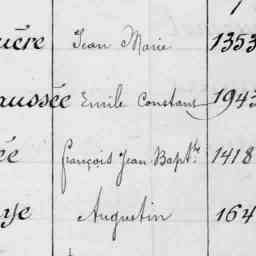 uère Jean Marie 1353
aussée Emile Constant 1943
ée François Jean Bapt.te 1418
ye Augustin 164